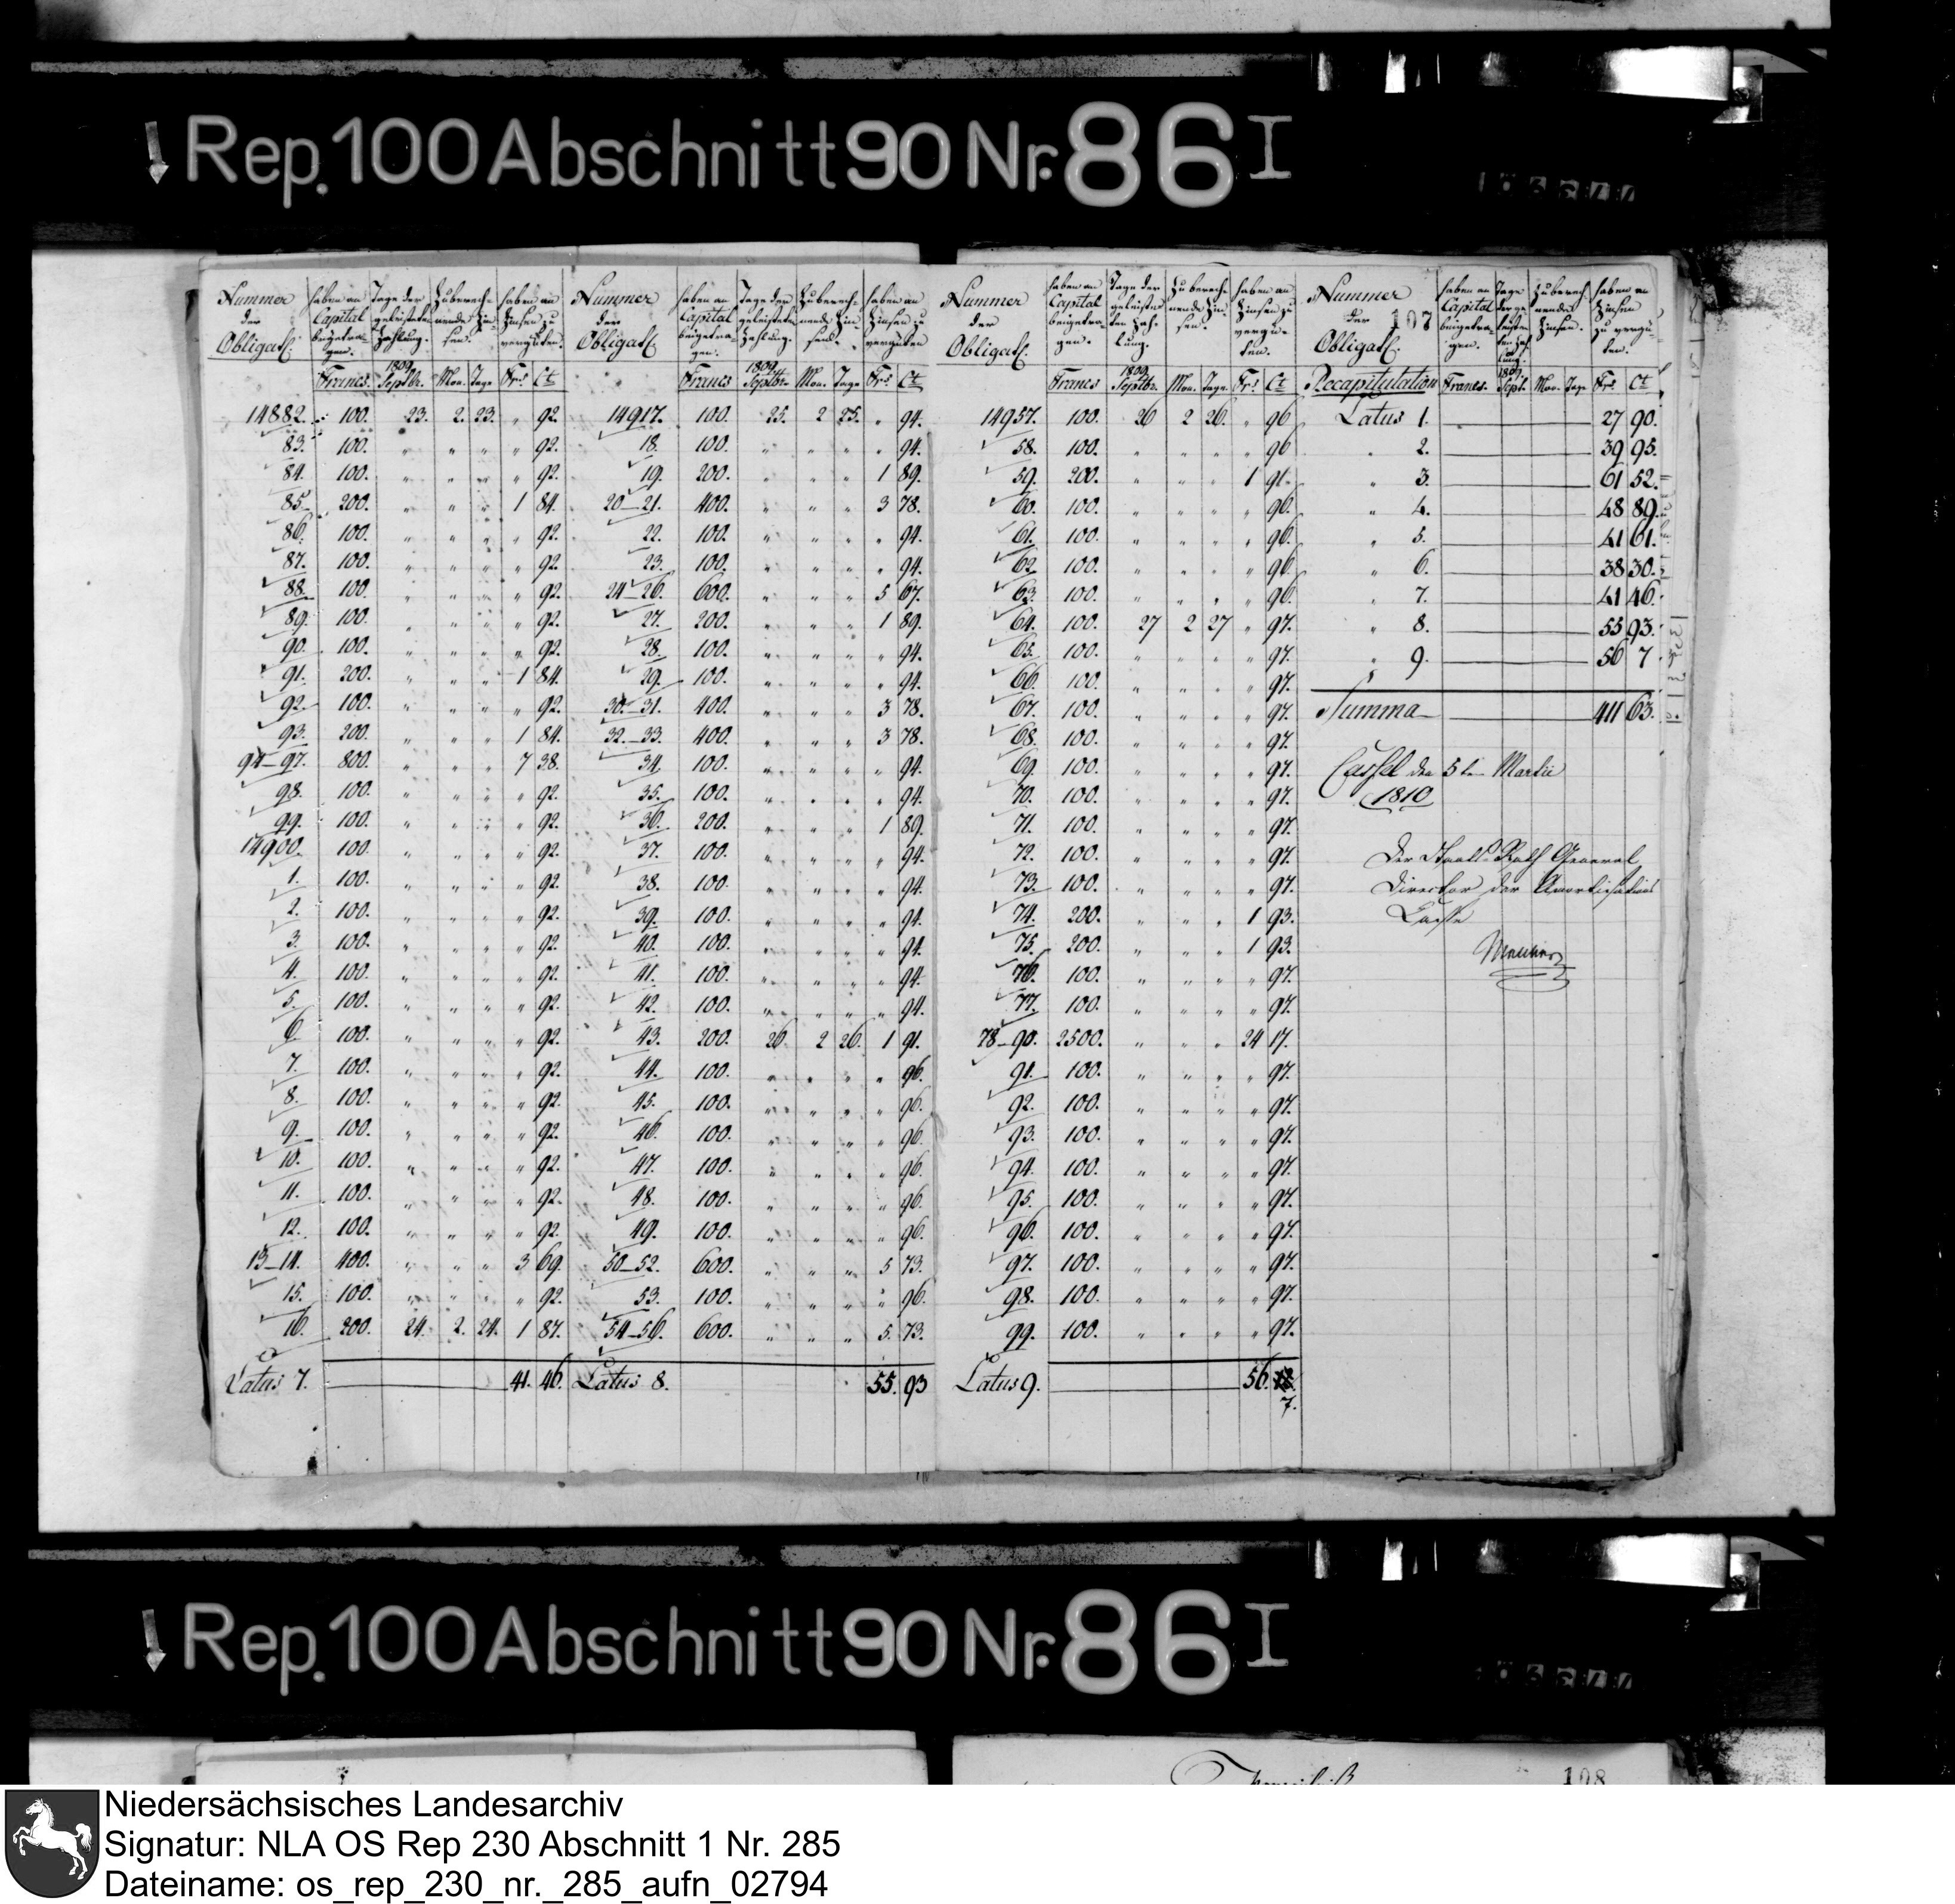 Rep. 100 Abschnitt 90 Nr. 86 I
Nummer der Obligat. haben an Capital beigetragen. Tage der geleisteten Zahlung. Zu berechnende Zinsen. haben an Zinsen zu vergüten.
Francs. 1809 Septbr. Mon. Tage Frs. Ct.
14882. 100. 23. 2. 23. " 92.
83. 100. " " " " 92.
84. 100. " " " " 92.
85. 200. " " " 1 84.
86. 100. " " " " 92.
87. 100. " " " " 92.
88. 100. " " " " 92.
89. 100. " " " " 92.
90. 100. " " " " 92.
91. 200. " " " 1 84.
92. 100. " " " " 92.
93. 200. " " " 1 84.
94–97. 800. " " " 7 38.
98. 100. " " " " 92.
99. 100. " " " " 92.
14900. 100. " " " " 92.
1. 100. " " " " 92.
2. 100. " " " " 92.
3. 100. " " " " 92.
4. 100. " " " " 92.
5. 100. " " " " 92.
6. 100. " " " " 92.
7. 100. " " " " 92.
8. 100. " " " " 92.
9. 100. " " " " 92.
10. 100. " " " " 92.
11. 100. " " " " 92.
12. 100. " " " " 92.
13–14. 400. " " " 3 69.
15. 100. " " " " 92.
16. 200. 24. 2. 24. 1 87.
Latus 7. 41. 46.
Nummer der Obligat. haben an Capital beigetragen. Tage der geleisteten Zahlung. Zu berechnende Zinsen. haben an Zinsen zu vergüten
Francs 1809 Septbr. Mon. Tage Frs. Ct.
14917. 100. 25. 2 25. " 94.
18. 100. " " " " 94.
19. 200. " " " 1 89.
20–21. 400. " " " 3 78.
22. 100. " " " " 94.
23. 100. " " " " 94.
24–26. 600. " " " 5 67.
27. 200. " " " 1 89.
28. 100. " " " " 94.
29. 100. " " " " 94.
30–31. 400. " " " 3 78.
32–33. 400. " " " 3 78.
34. 100. " " " " 94.
35. 100. " " " " 94.
36. 200. " " " 1 89.
37. 100. " " " " 94.
38. 100. " " " " 94.
39. 100. " " " " 94.
40. 100. " " " " 94.
41. 100. " " " " 94.
42. 100. " " " " 94.
43. 200. 26. 2 26. 1 91.
44. 100. " " " " 96.
45. 100. " " " " 96.
46. 100. " " " " 96.
47. 100. " " " " 96.
48. 100. " " " " 96.
49. 100. " " " " 96.
50–52. 600. " " " 5 73.
53. 100. " " " " 96.
54–56. 600. " " " 5. 73.
Latus 8. 55. 93
Nummer der Obligat. haben an Capital beigetragen. Tage der geleisteten Zahlung. Zu berechnende Zinsen. haben an Zinsen zu vergüten.
Francs 1809 Septbr. Mon. Tage. Frs. Ct.
14957. 100. 26 2 26. " 96
58. 100. " " " " 96
59. 200. " " " 1 91.
60. 100. " " " " 96.
61. 100. " " " " 96.
62. 100. " " " " 96.
63. 100. " " " " 96.
64. 100. 27 2 27 " 97.
65. 100. " " " " 97.
66. 100. " " " " 97.
67. 100. " " " " 97.
68. 100. " " " " 97.
69. 100. " " " " 97.
70. 100. " " " " 97.
71. 100. " " " " 97.
72. 100. " " " " 97.
73. 100. " " " " 97.
74. 200. " " " 1 93.
75. 200. " " " 1 93.
76. 100. " " " " 97.
77. 100. " " " " 97.
78–90. 2500. " " " 24 17.
91. 100. " " " " 97.
92. 100. " " " " 97.
93. 100. " " " " 97.
94. 100. " " " " 97.
95. 100. " " " " 97.
96. 100. " " " " 97.
97. 100. " " " " 97.
98. 100. " " " " 97.
99. 100. " " " " 97.
Latus 9. 56.
7.
Nummer der Obligat. haben an Capital beigetragen. Tage der geleisteten Zahlung. Zu berechnende Zinsen. haben an Zinsen zu vergüten.
107
Recapitulation Francs. 1809. Sept. Mon. Tage Frs. Ct.
Latus 1. 27 90.
" 2. 39 95.
" 3. 61 52.
" 4. 48 89.
" 5. 41 61.
" 6. 38 30.
" 7. 41 46.
" 8. 55 93.
" 9. 56 7.
Summa 411 63.
Cassel den 5ten Martii
1810
Der Staats-Rath General
Director der Amortisations
Casse
Rep. 100 Abschnitt 90 Nr. 86 I
108
Niedersächsisches Landesarchiv
Signatur: NLA OS Rep 230 Abschnitt 1 Nr. 285
Dateiname: os_rep_230_nr._285_aufn_02794